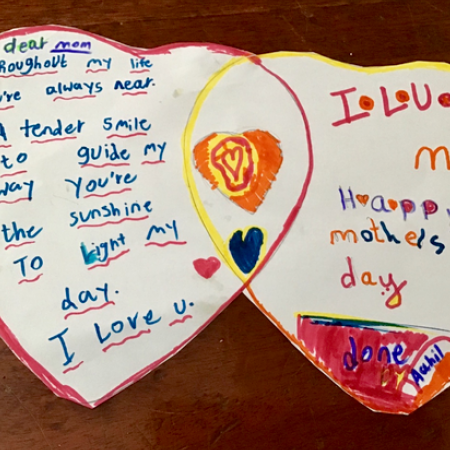 dear mom
roughout my life
're always near.
A tender smile
to guide my
way you're
the sunshine
To Light my
day.
I Love u.
I.L.U.
m
Happy
mothers
day
done
by Aahil